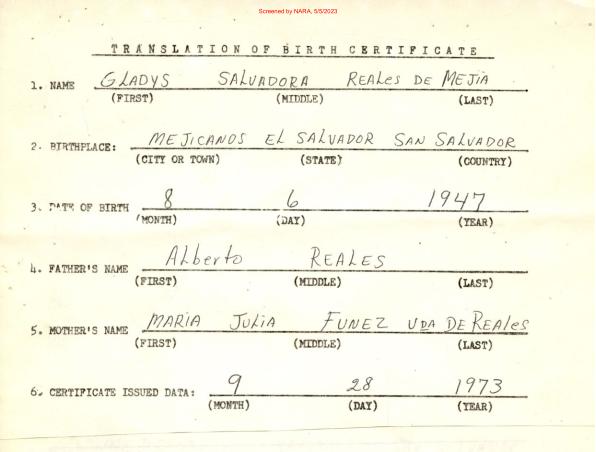 Screened by NARA, 5/5/2023
TRANSLATION OF BIRTH CERTIFICATE
1. NAME GLADYS SALVADORA REALES DE MEJIA
(FIRST) (MIDDLE) (LAST)
2. BIRTHPLACE: MEJICANOS EL SALVADOR SAN SALVADOR
(CITY OR TOWN) (STATE) (COUNTRY)
3. DATE OF BIRTH 8 6 1947
(MONTH) (DAY) (YEAR)
4. FATHER'S NAME Alberto REALES
(FIRST) (MIDDLE) (LAST)
5. MOTHER'S NAME MARIA JULIA FUNEZ VDA DE REAles
(FIRST) (MIDDLE) (LAST)
6. CERTIFICATE ISSUED DATA: 9 28 1973
(MONTH) (DAY) (YEAR)